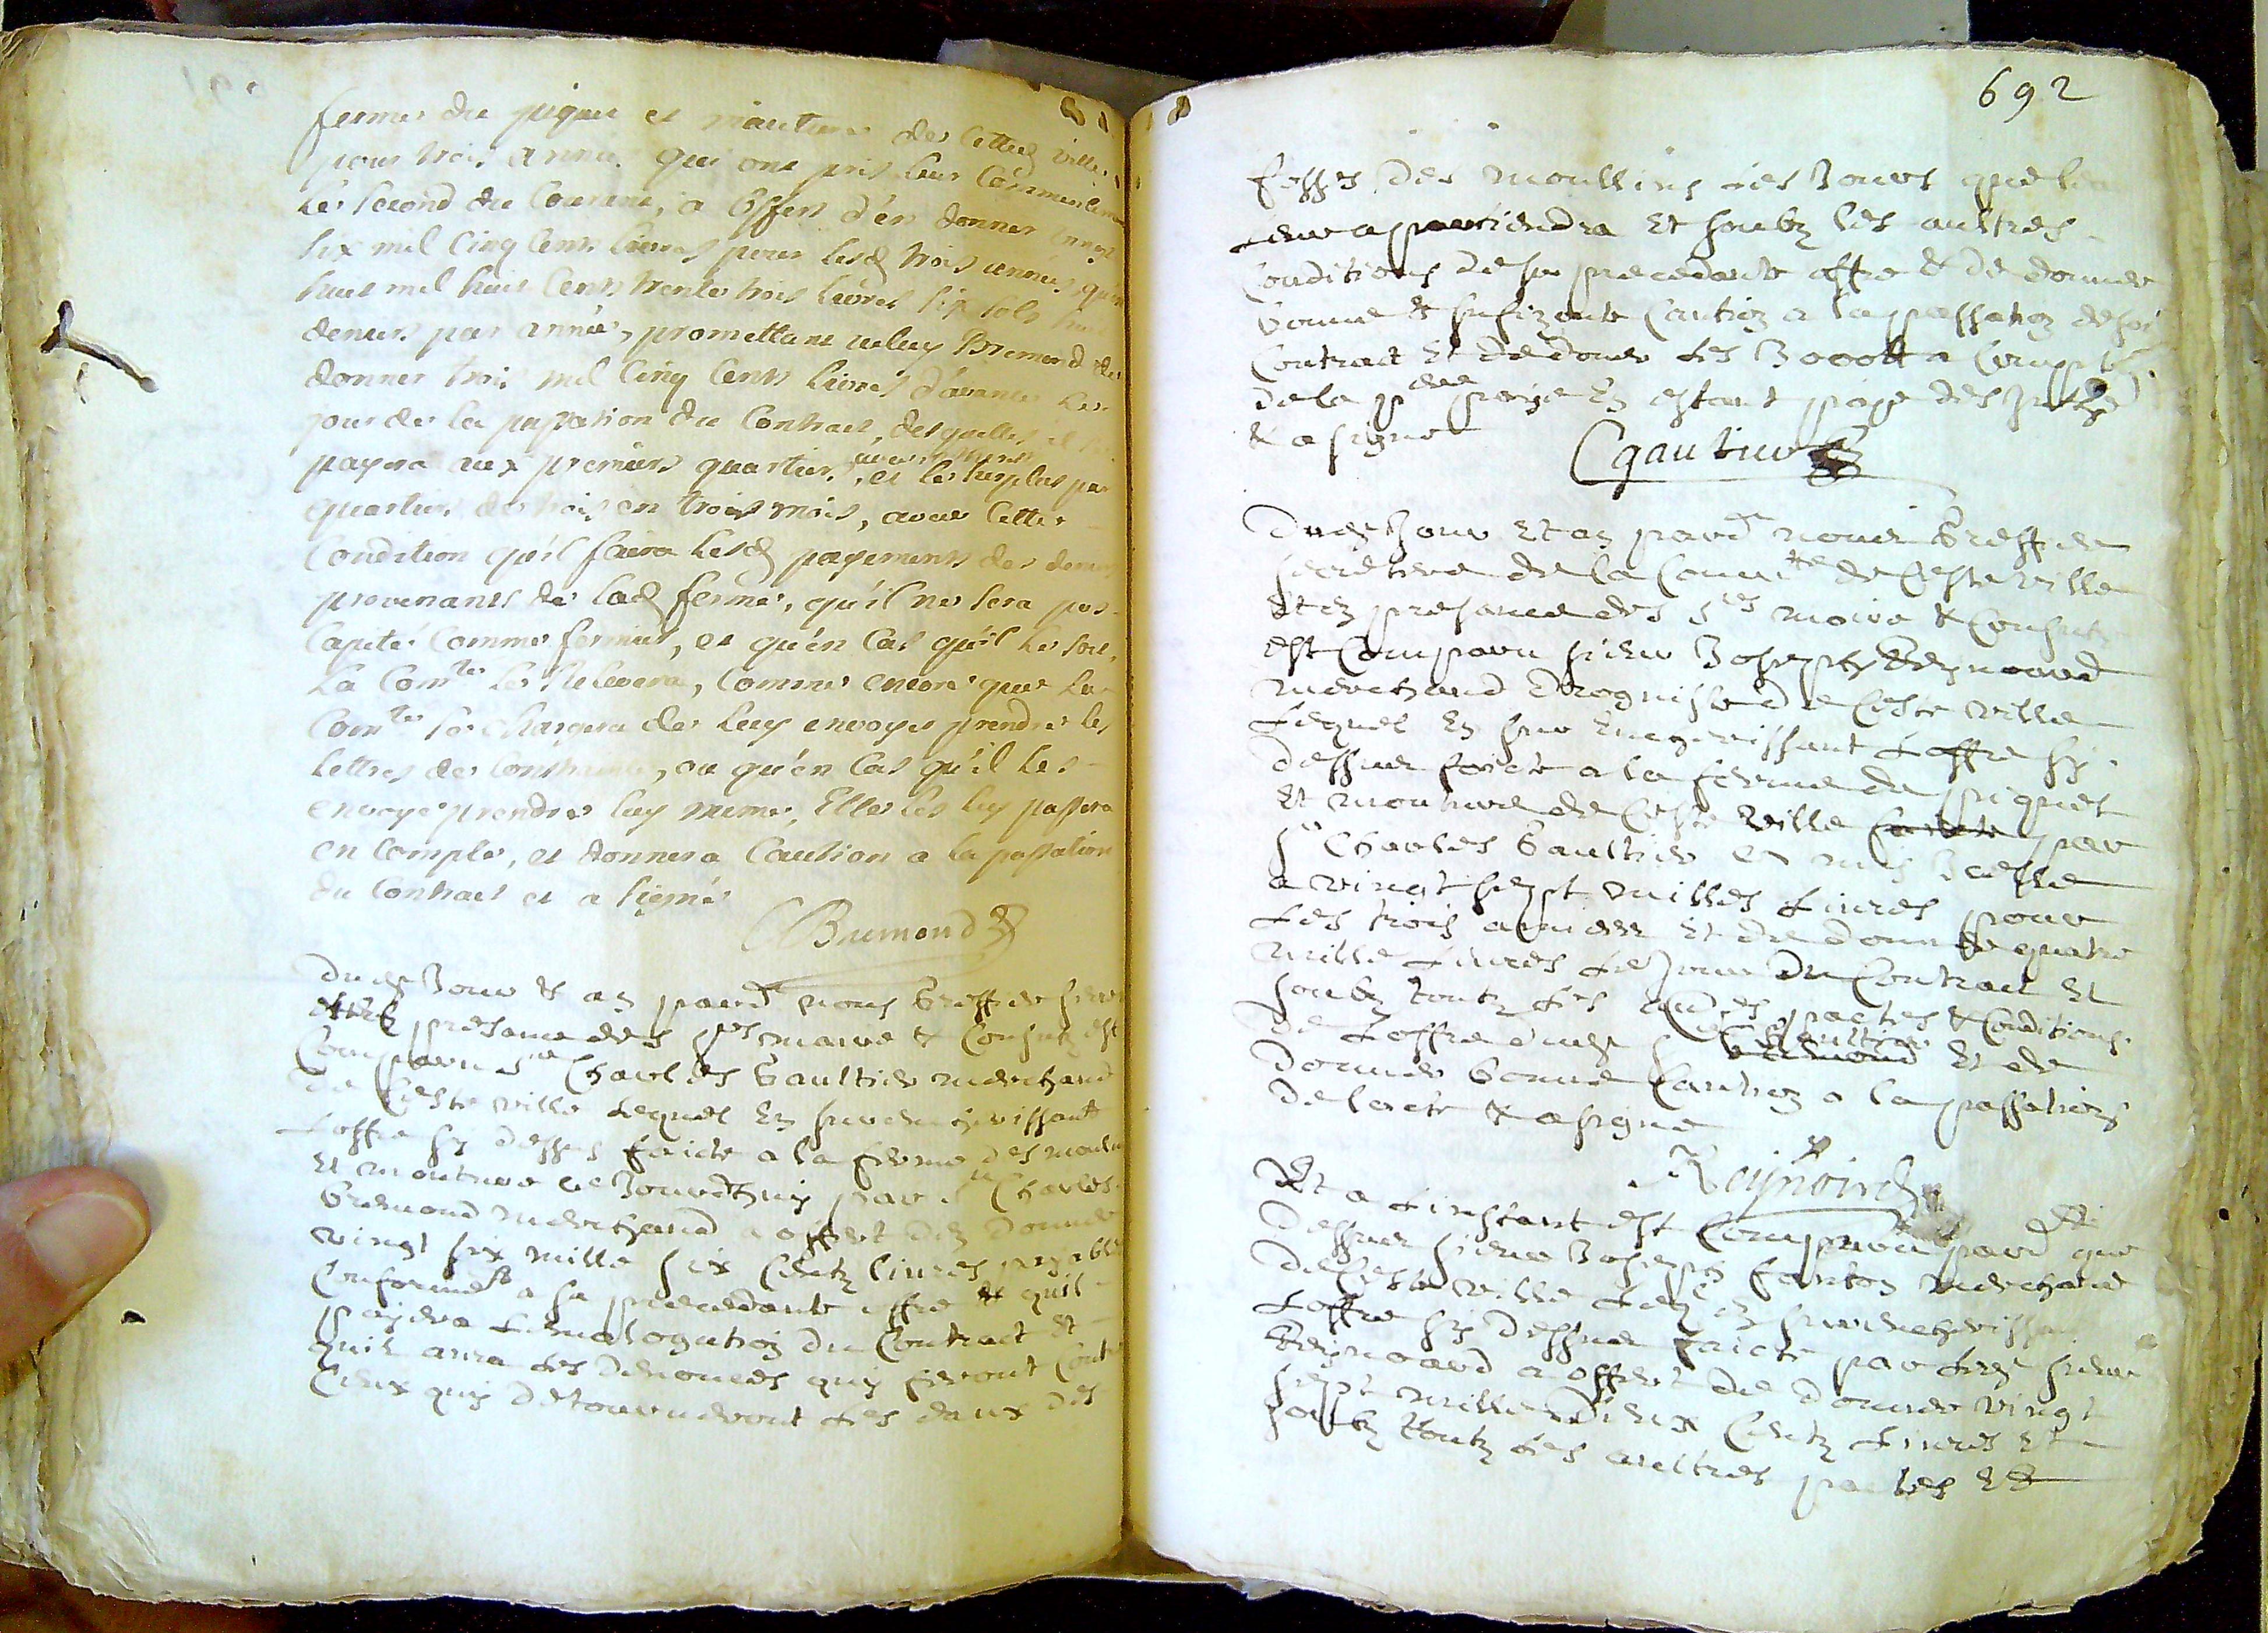 ferme du piquet et mouture de cette ville
pour trois années qui ont pris leur commencem
le second du courant, a offert d'en donner vingt
six mil cinq cents livres pour lesd trois années, qu'est
huit mil huit cents trente trois livres six sols huit
deniers par année, promettant celuy Bremond de
donner trois mil cinq cents livres d'avance le
jour de la passation du contract, desquelles il se
payera aux premiers quartiers, et le surplus par
quartier de trois en trois mois, avec cette
condition qu'il faira lesd payements des deniers
provenants de lad ferme, qu'il ne sera pas
capité comme fermier, et qu'en cas qu'il le soit,
la Comte le relevera, comme encore que la
Comte se chargera de luy envoyer prendre les
lettres de , ou qu'en cas qu'il les
envoye prendre luy meme, Elle les luy passera
en compte, et donnera caution a la passation
du contract et a signé
CBremond
Dud Jour & an pard nous Greffier
et en presance des srs maire & Consulz est
Comparu sr Charles Gaultier merchand
de Ceste ville lequel En surencherissant
Loffre sy dessus faicte a la ferme des moulins
Et mouture ce Jourdhuy par sr Charles
Bremond merchand a offert den donner
vingt six mille six Centz livres payables
Conformemt a sa precedante offre & quil
payera Lomologation du Contract Et
quil aura les denonces quy seront Contre
Ceux quy detourneront les eaux des
692
fosses des moullins les Jours quelea
leur apartiendra Et soubz les aultres
Conditions de sa precedante offre & de donner
bonne & sufizante Caution a la passation desd
Contract Et de doner les 3000 a Compte
de la paye En estant paye des
& a signe
Cgautier
Dud Jour Et an pard nous Greffier
secretere de la Commte de Ceste ville
Et en presance des srs maire & Consulz
est Comparu sieur Joseph Reynoard
merchand droguiste de Ceste ville
Lequel En surencherissant Loffre sy
dessus faicte a la ferme du piquet
Et mouture de Ceste ville par
sr Charles Gaultier et mis Icelle
a vingt sept milles Livres pour
Les trois annees Et de donner quatre
mille Livres Le Jour du Contract Et
soubz toutz les aultres pactes & Conditions
de Loffre dud Gaultier Et de
donner bonne Caution a la passation
de lacte & a signe
Reynoird
Et a Linstant est Comparu pard que
dessus sieur Joseph fanton merchand
de Ceste ville Leql en surencherissant
Loffre sy dessus faicte par led sieur
Reynoard a offert de donner vingt
sept mille deux Centz Livres Et
soubz toutz les aultres pactes Et